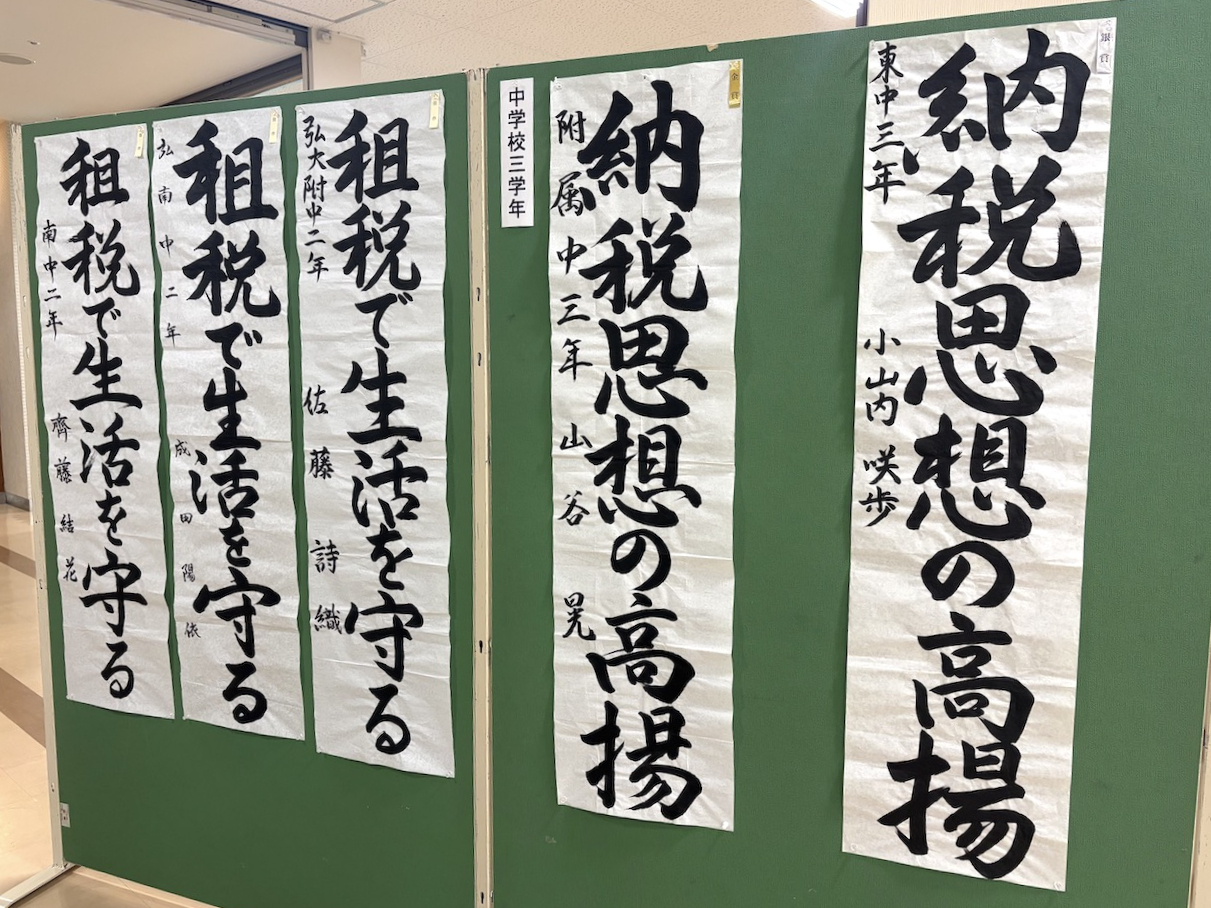 租税で生活を守る
南中二年 齊藤結花
租税で生活を守る
弘南中二年 成田陽依
租税で生活を守る
弘大附中二年 佐藤詩織
中学校三学年
金賞
納税思想の高揚
附属中三年 山谷晃
銀賞
納税思想の高揚
東中三年 小山内咲歩